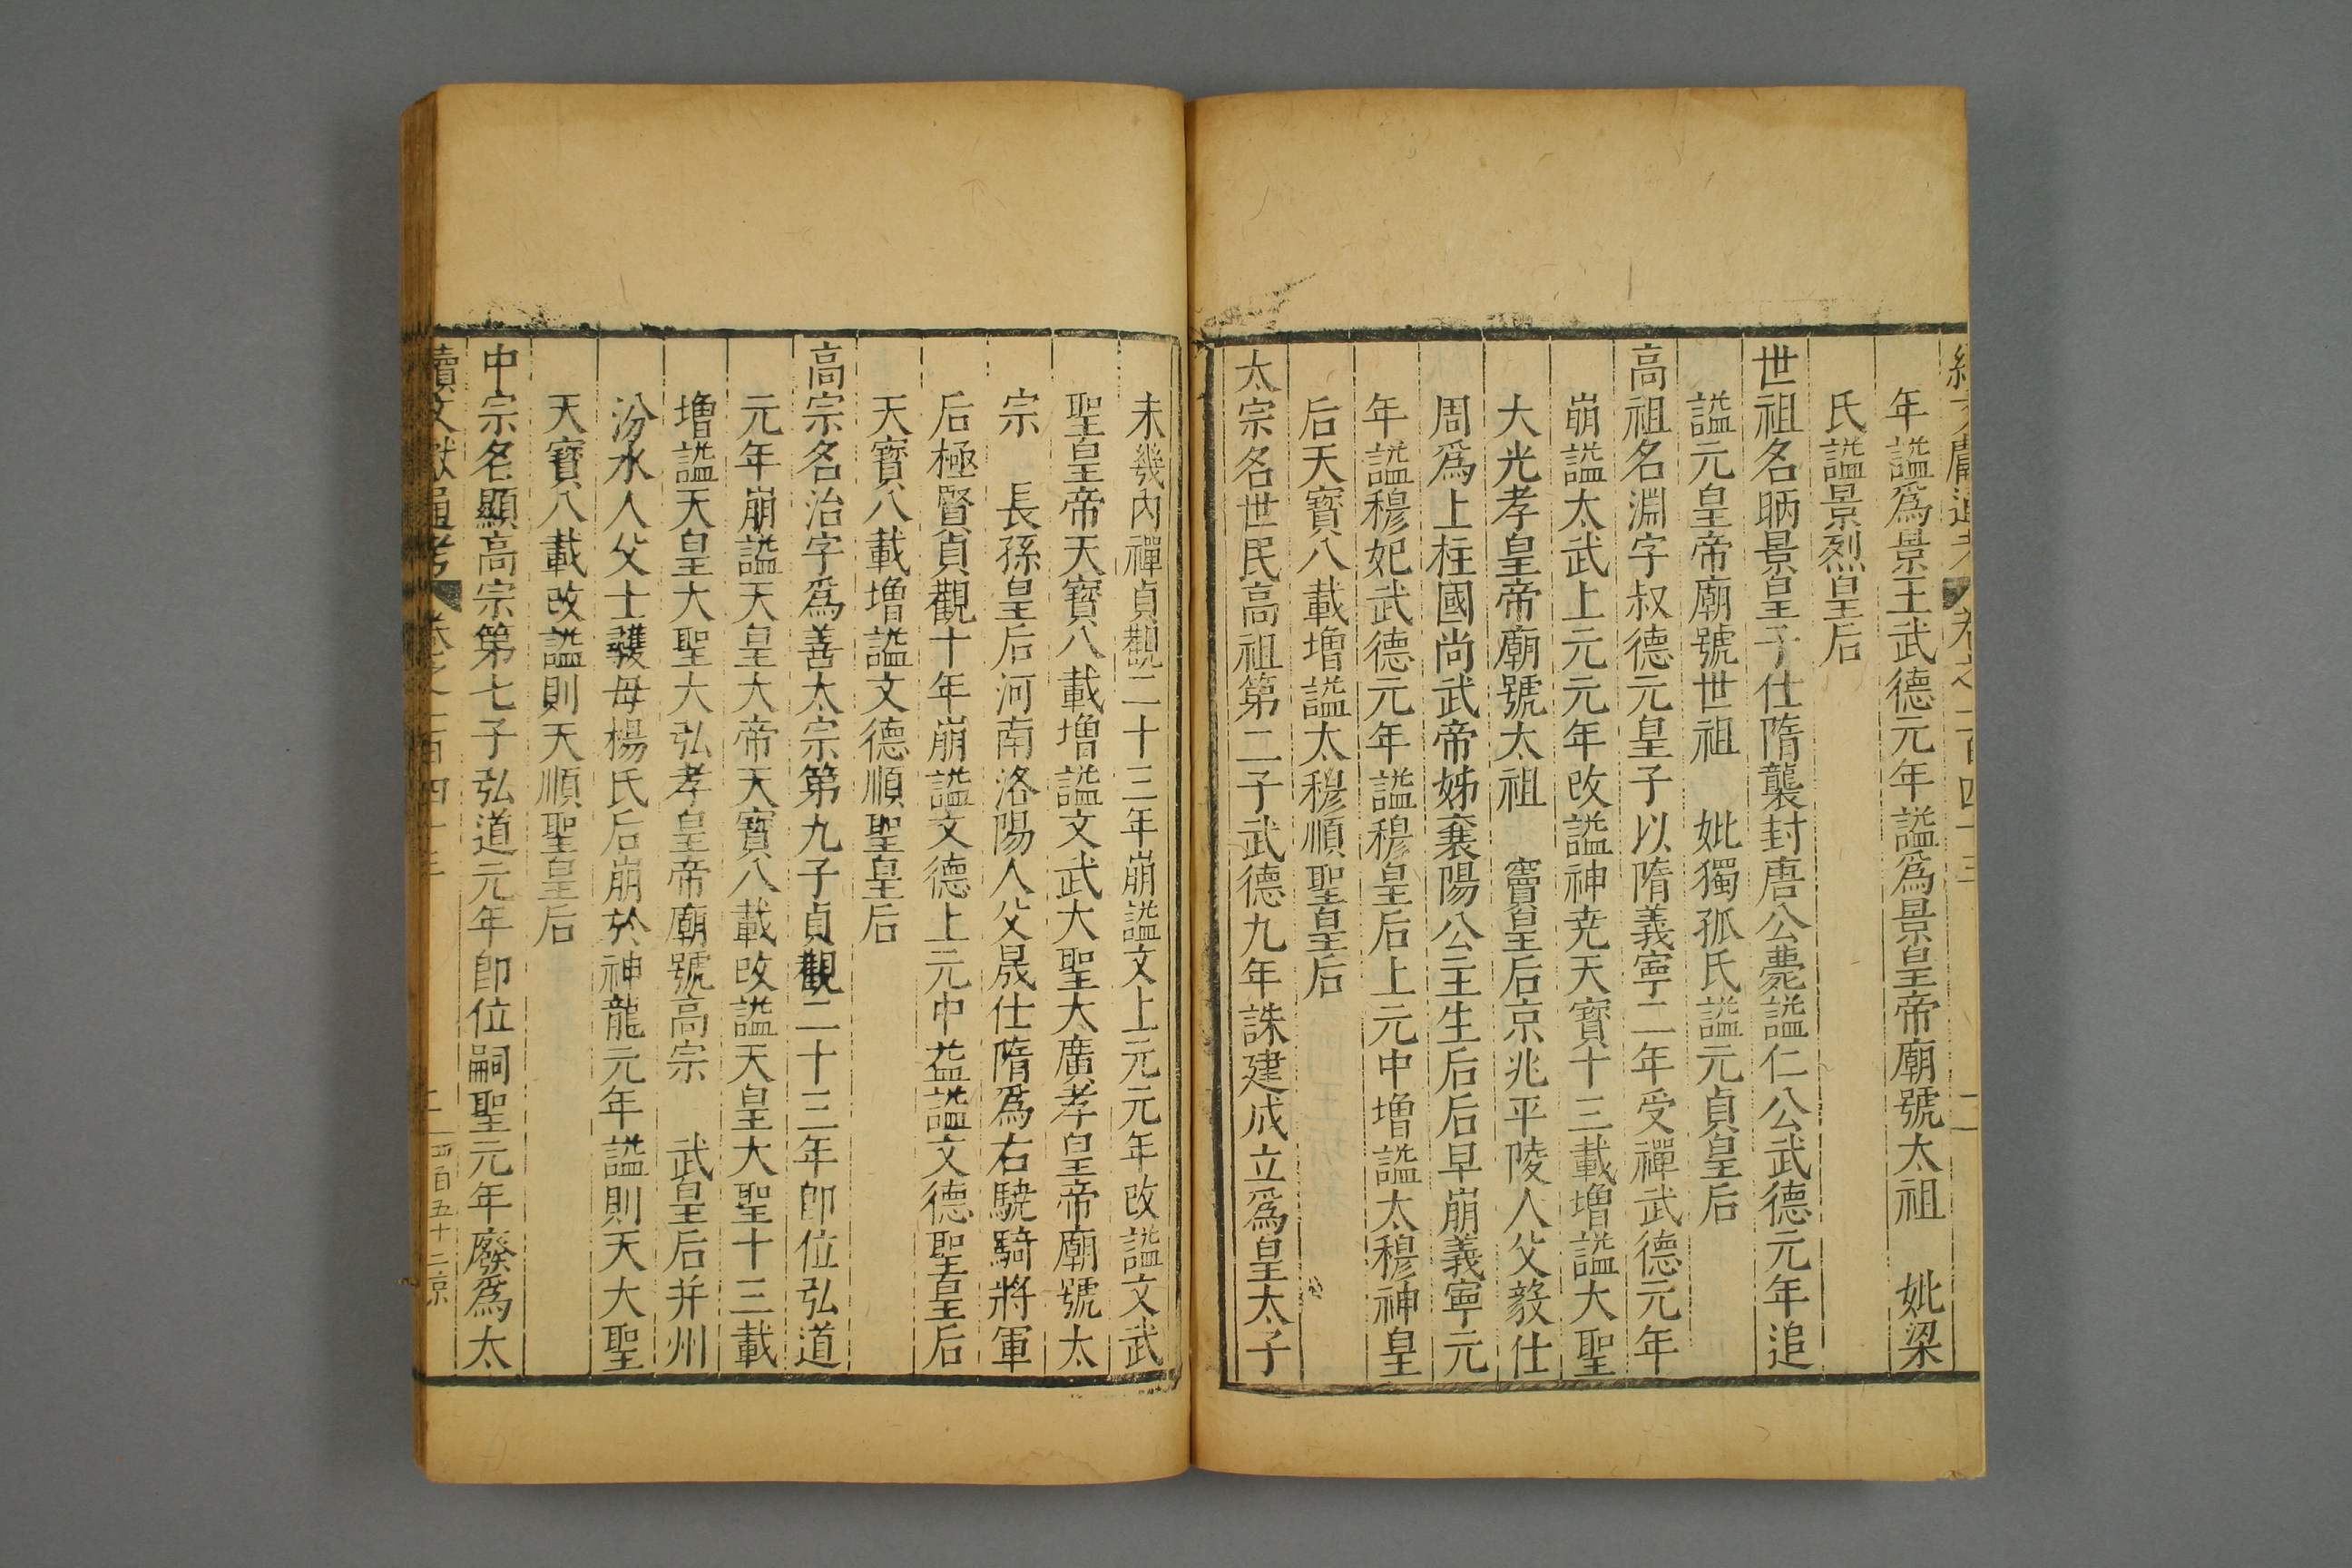 年諡爲景王武德元年諡爲景皇帝廟號太祖　妣梁
氏諡景烈皇后
世祖名昞景皇子仕隋襲封唐公薨諡仁公武德元年追
諡元皇帝廟號世祖　妣獨孤氏諡元貞皇后
高祖名淵字叔德元皇子以隋義寧二年受禪武德元年
崩諡太武上元元年改諡神尭天寳十三載增諡大聖
大光孝皇帝廟號太祖　竇皇后京兆平陵人父毅仕
周爲上柱國尚武帝姊襄陽公主生后后早崩義寧元
年諡穆妃武德元年諡穆皇后上元中增諡太穆神皇
后天寳八載增諡太穆順聖皇后
太宗名世民高祖第二子武德九年誅建成立爲皇太子
未幾内禪貞觀二十三年崩諡文上元元年改諡文武
聖皇帝天寳八載增諡文武大聖大廣孝皇帝廟號太
宗　長孫皇后河南洛陽人父晟仕隋爲右驍騎將軍
后極賢貞觀十年崩諡文德上元中益諡文德聖皇后
天寳八載增諡文德順聖皇后
高宗名治字爲善太宗第九子貞觀二十三年卽位弘道
元年崩諡天皇大帝天寳八載改諡天皇大聖十三載
增諡天皇大聖大弘孝皇帝廟號高宗　武皇后并州
汾水人父士彠母楊氏后崩於神龍元年諡則天大聖
天寳八載改諡則天順聖皇后
中宗名顯高宗第七子弘道元年卽位嗣聖元年廢爲太
續文獻通考　卷之二百四十三　二　四百五十二　京